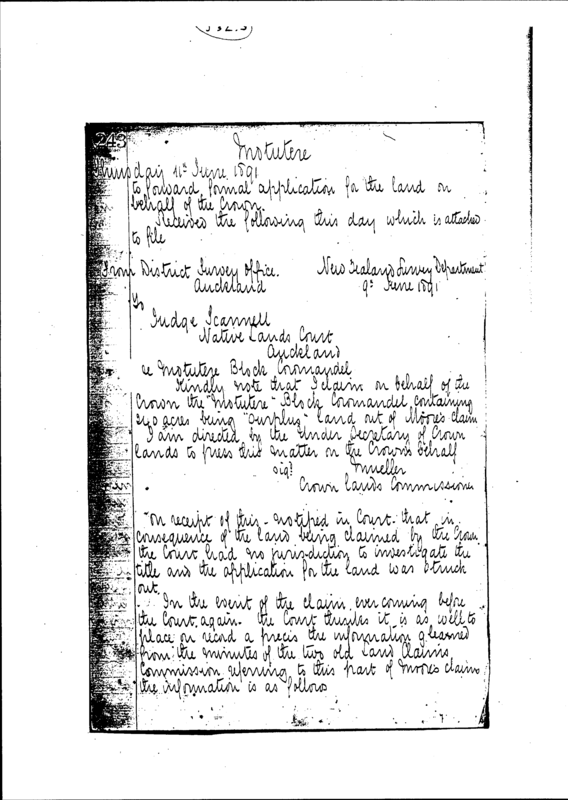 243
Motutere
Thursday 11th June 1891
to forward formal application for the land on
behalf of the Crown.
Received the following this day which is attached
to file
From District Survey Office. New Zealand Survey Department
Auckland 9th June 1891
To
Judge Scannell
Native Lands Court
Auckland
re Motutere Block Coromandel
Kindly note that I claim on behalf of the
Crown the "Motutere" Block Coromandel containing
acres being "surplus" land out of Moore's claim
I am directed by the Under Secretary of Crown
lands to press this matter on the Crown's behalf
sigd Mueller
Crown Lands Commissioner
On receipt of this - notified in Court that in
consequence of the land being claimed by the Crown
the Court had no jurisdiction to investigate the
title and the application for the land was struck
out.
In the event of the claim ever coming before
the Court again. the Court thinks it is as well to
place on record a precis the information gleaned
from the minutes of the two old Land Claims
Commission referring to this part of Moore's claim
the information is as follows